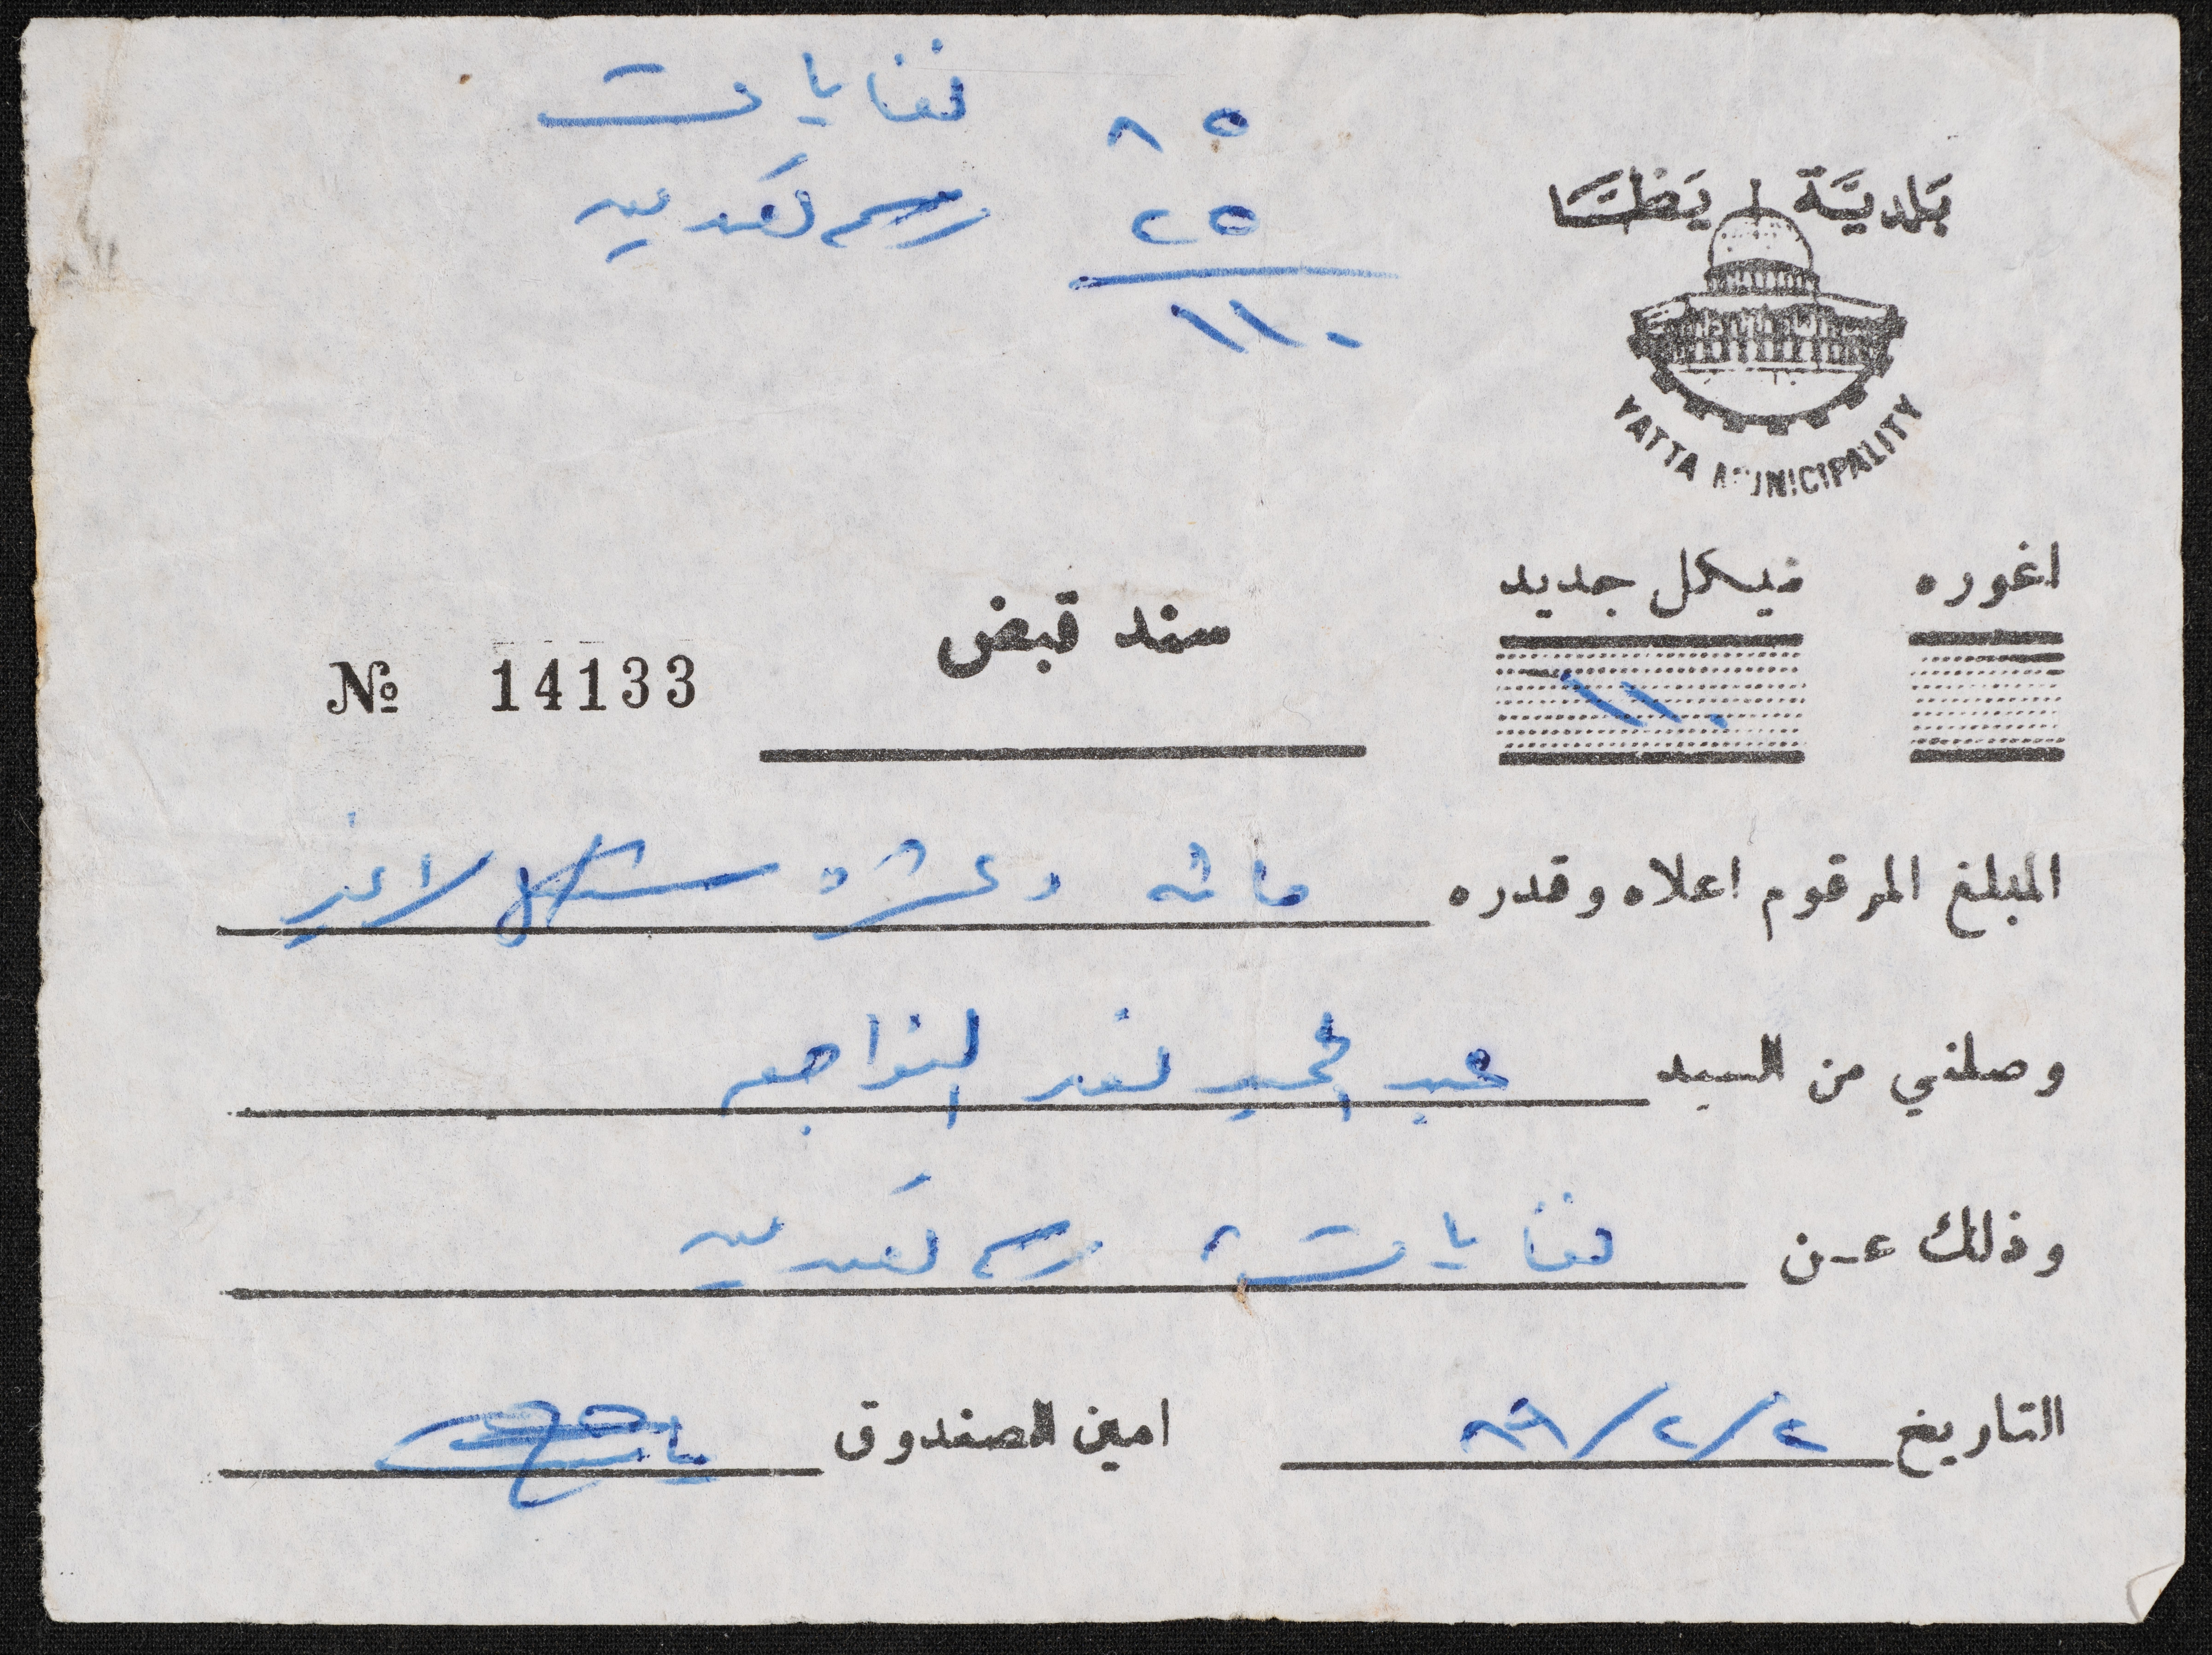 ٨٥ نفايات
٢٥ رسم تقديم
١١٠
بلدية يطا
YATTA MUNICIPALITY
اغوره شيكل جديد
١١٠
سند قبض
№ 14133
المبلغ المرقوم اعلاه وقدره مائه وعشرة شيكل لا غير
وصلني من السيد عبد الحميد النواجعه
وذلك عن نفايات رسم تقديم
التاريخ ٢/٢/٨٩ امين الصندوق